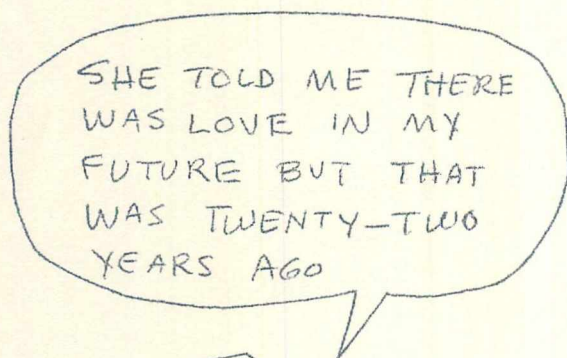 SHE TOLD ME THERE
WAS LOVE IN MY
FUTURE BUT THAT
WAS TWENTY-TWO
YEARS AGO